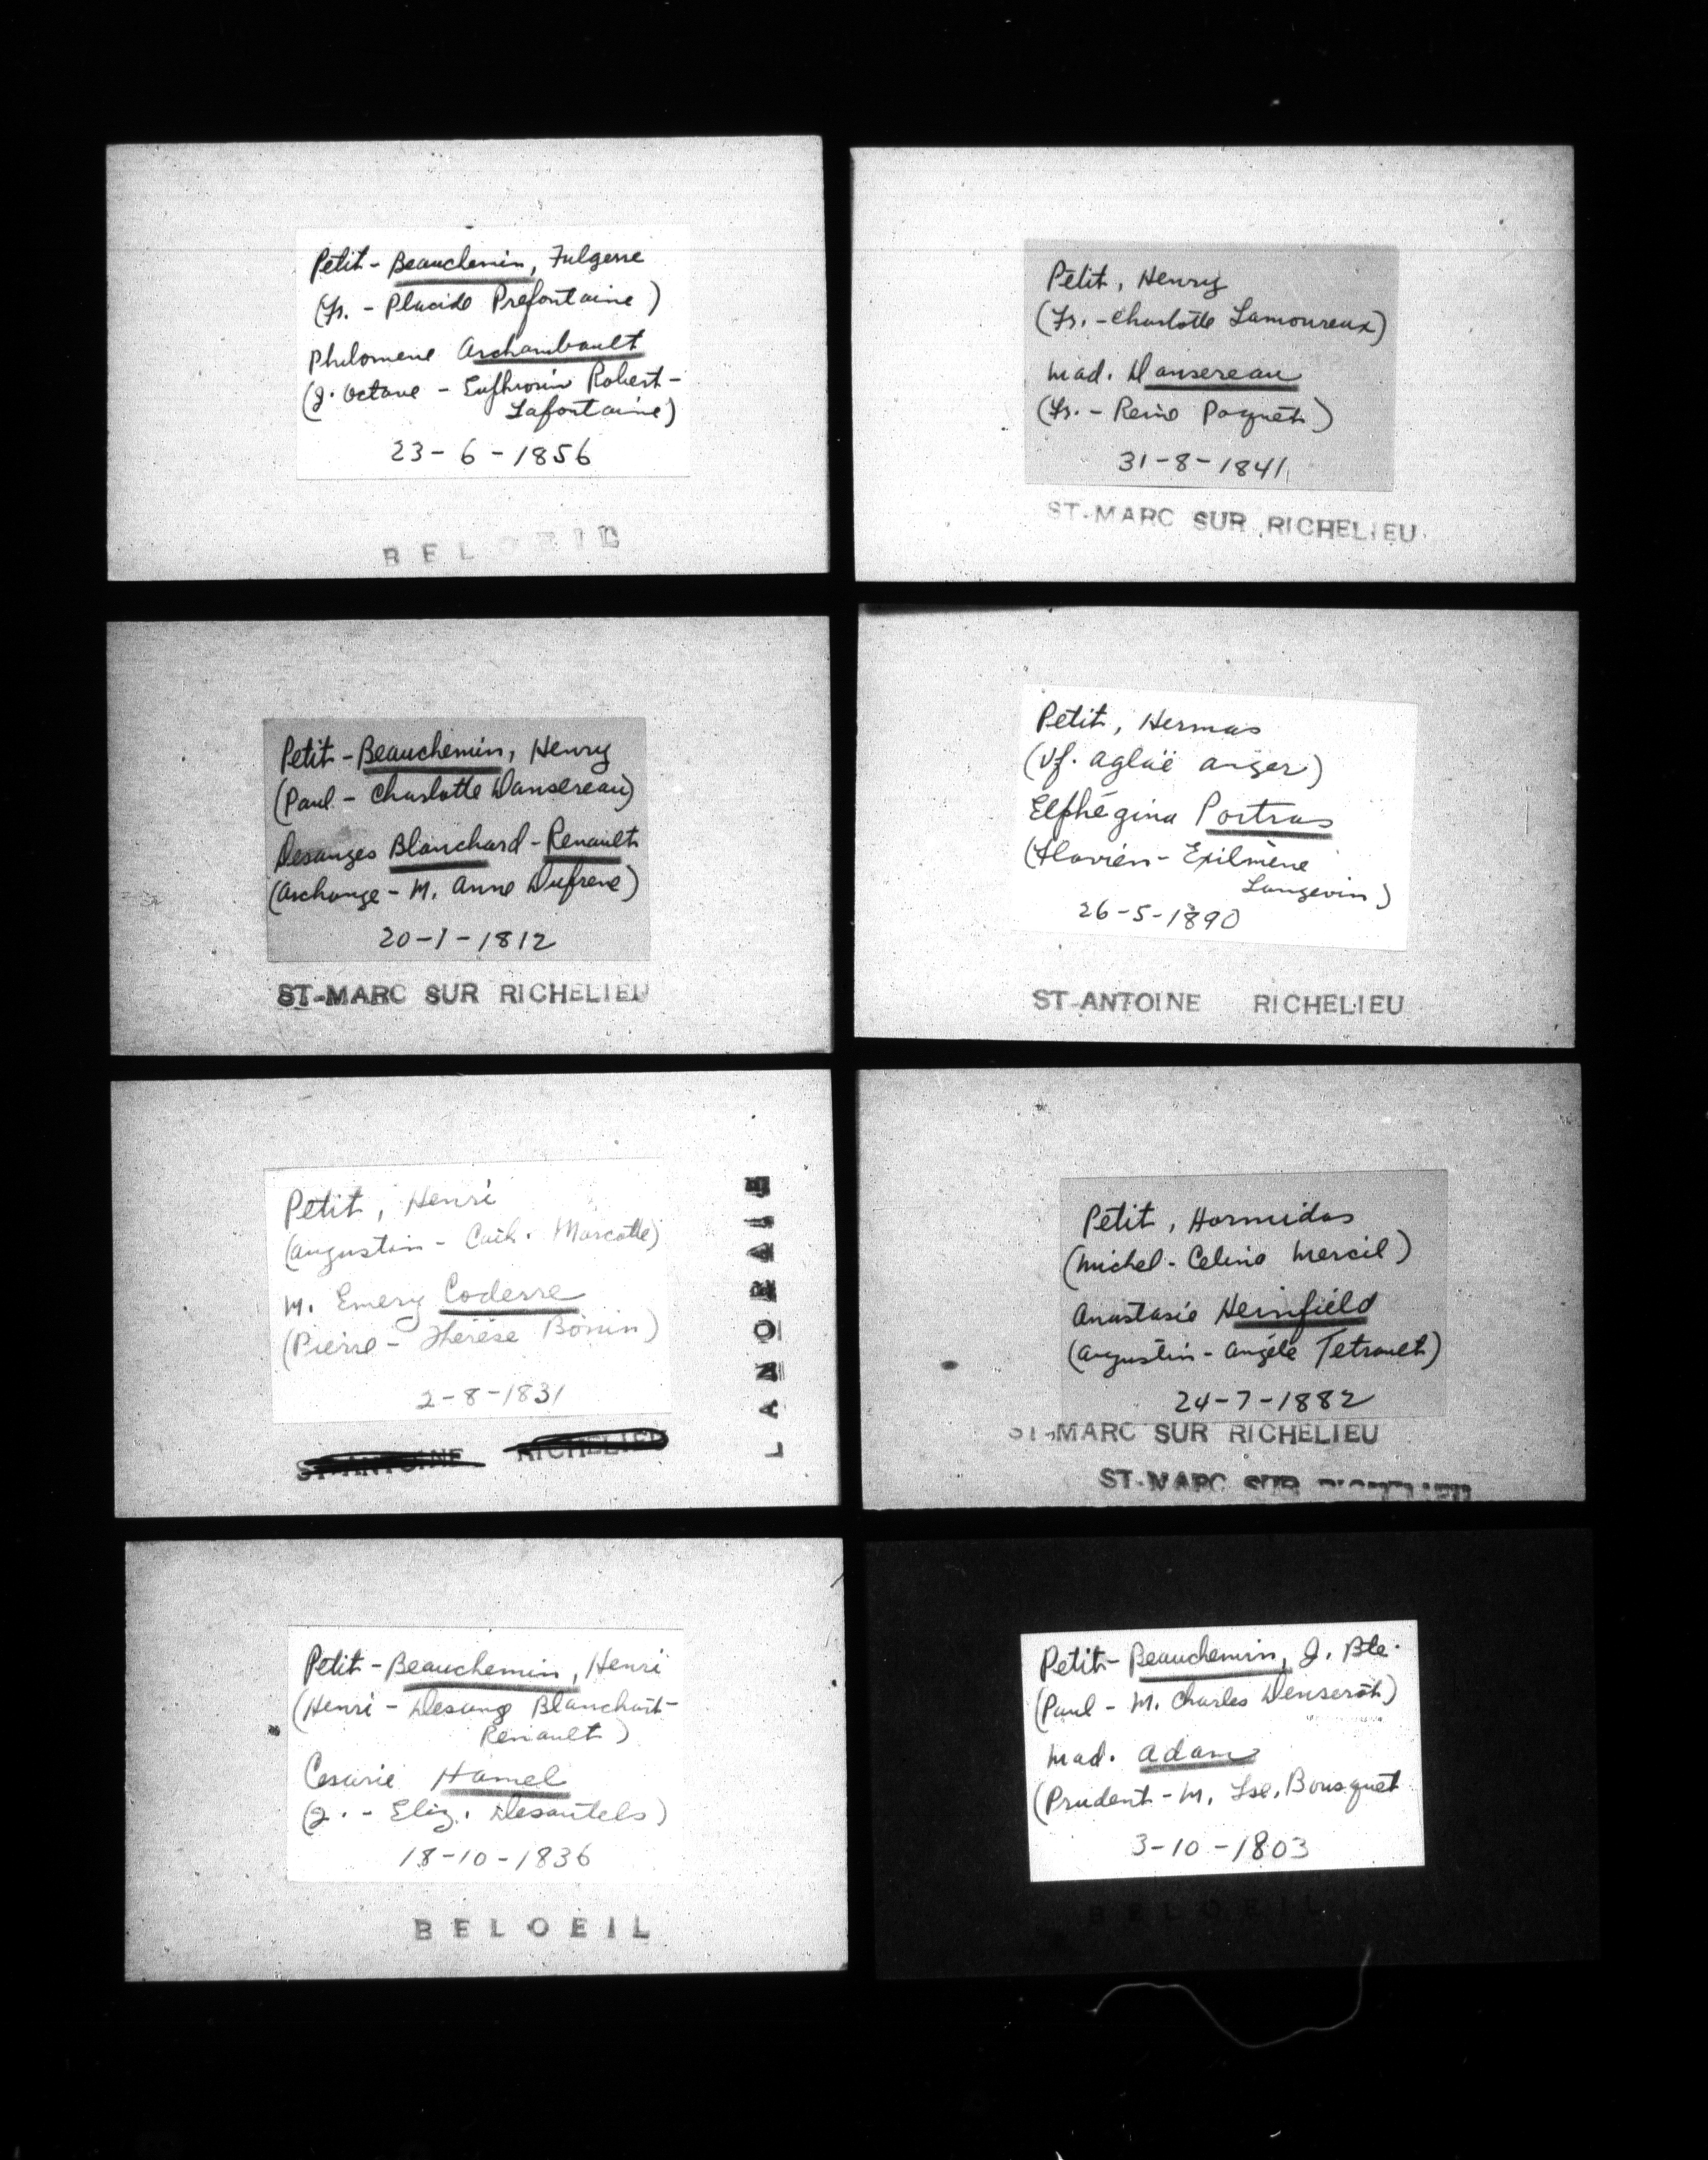 Petit-Beauchemin, Fulgence
(Fr. - Placide Prefontaine)
Philomene Archambault
(J. Octave - Eufhrosin Robert-
Lafontaine)
23-6-1856
BELOEIL
Petit, Henry
(Fr. - Charlotte Lamoureux)
Mad. Dansereau
(Fr. - Reine Paquet)
31-8-1841
ST-MARC SUR RICHELIEU
Petit-Beauchemin, Henry
(Paul - Charlotte Dansereau)
Desanges Blanchard-Renault
(Archange - M. Anne Dufrene)
20-1-1812
ST-MARC SUR RICHELIEU
Petit, Hermas
(Vf. Aglaë Anger)
Elphégina Portras
(Flavien - Exilmène
Langevin)
26-5-1890
ST-ANTOINE RICHELIEU
Petit, Henri
(Augustin - Cath. Marcotte)
M. Emery Coderre
(Pierre - Thérèse Bonin)
2-8-1831
ST-ANTOINE RICHELIEU
LANORAIE
Petit, Hormidas
(Michel - Celina Mercil)
Anastasie Heinfield
(Augustin - Angèle Tetrault)
24-7-1882
ST-MARC SUR RICHELIEU
ST-MARC SUR RICHELIEU
Petit-Beauchemin, Henri
(Henri - Desang Blanchart-
Renault)
Cesarie Hamel
(J. - Eliz. Desautels)
18-10-1836
BELOEIL
Petit-Beauchemin, J. Bte.
(Paul - M. Charles Denserot)
Mad. Adam
(Prudent - M. Lse. Bousquet
3-10-1803
BELOEIL